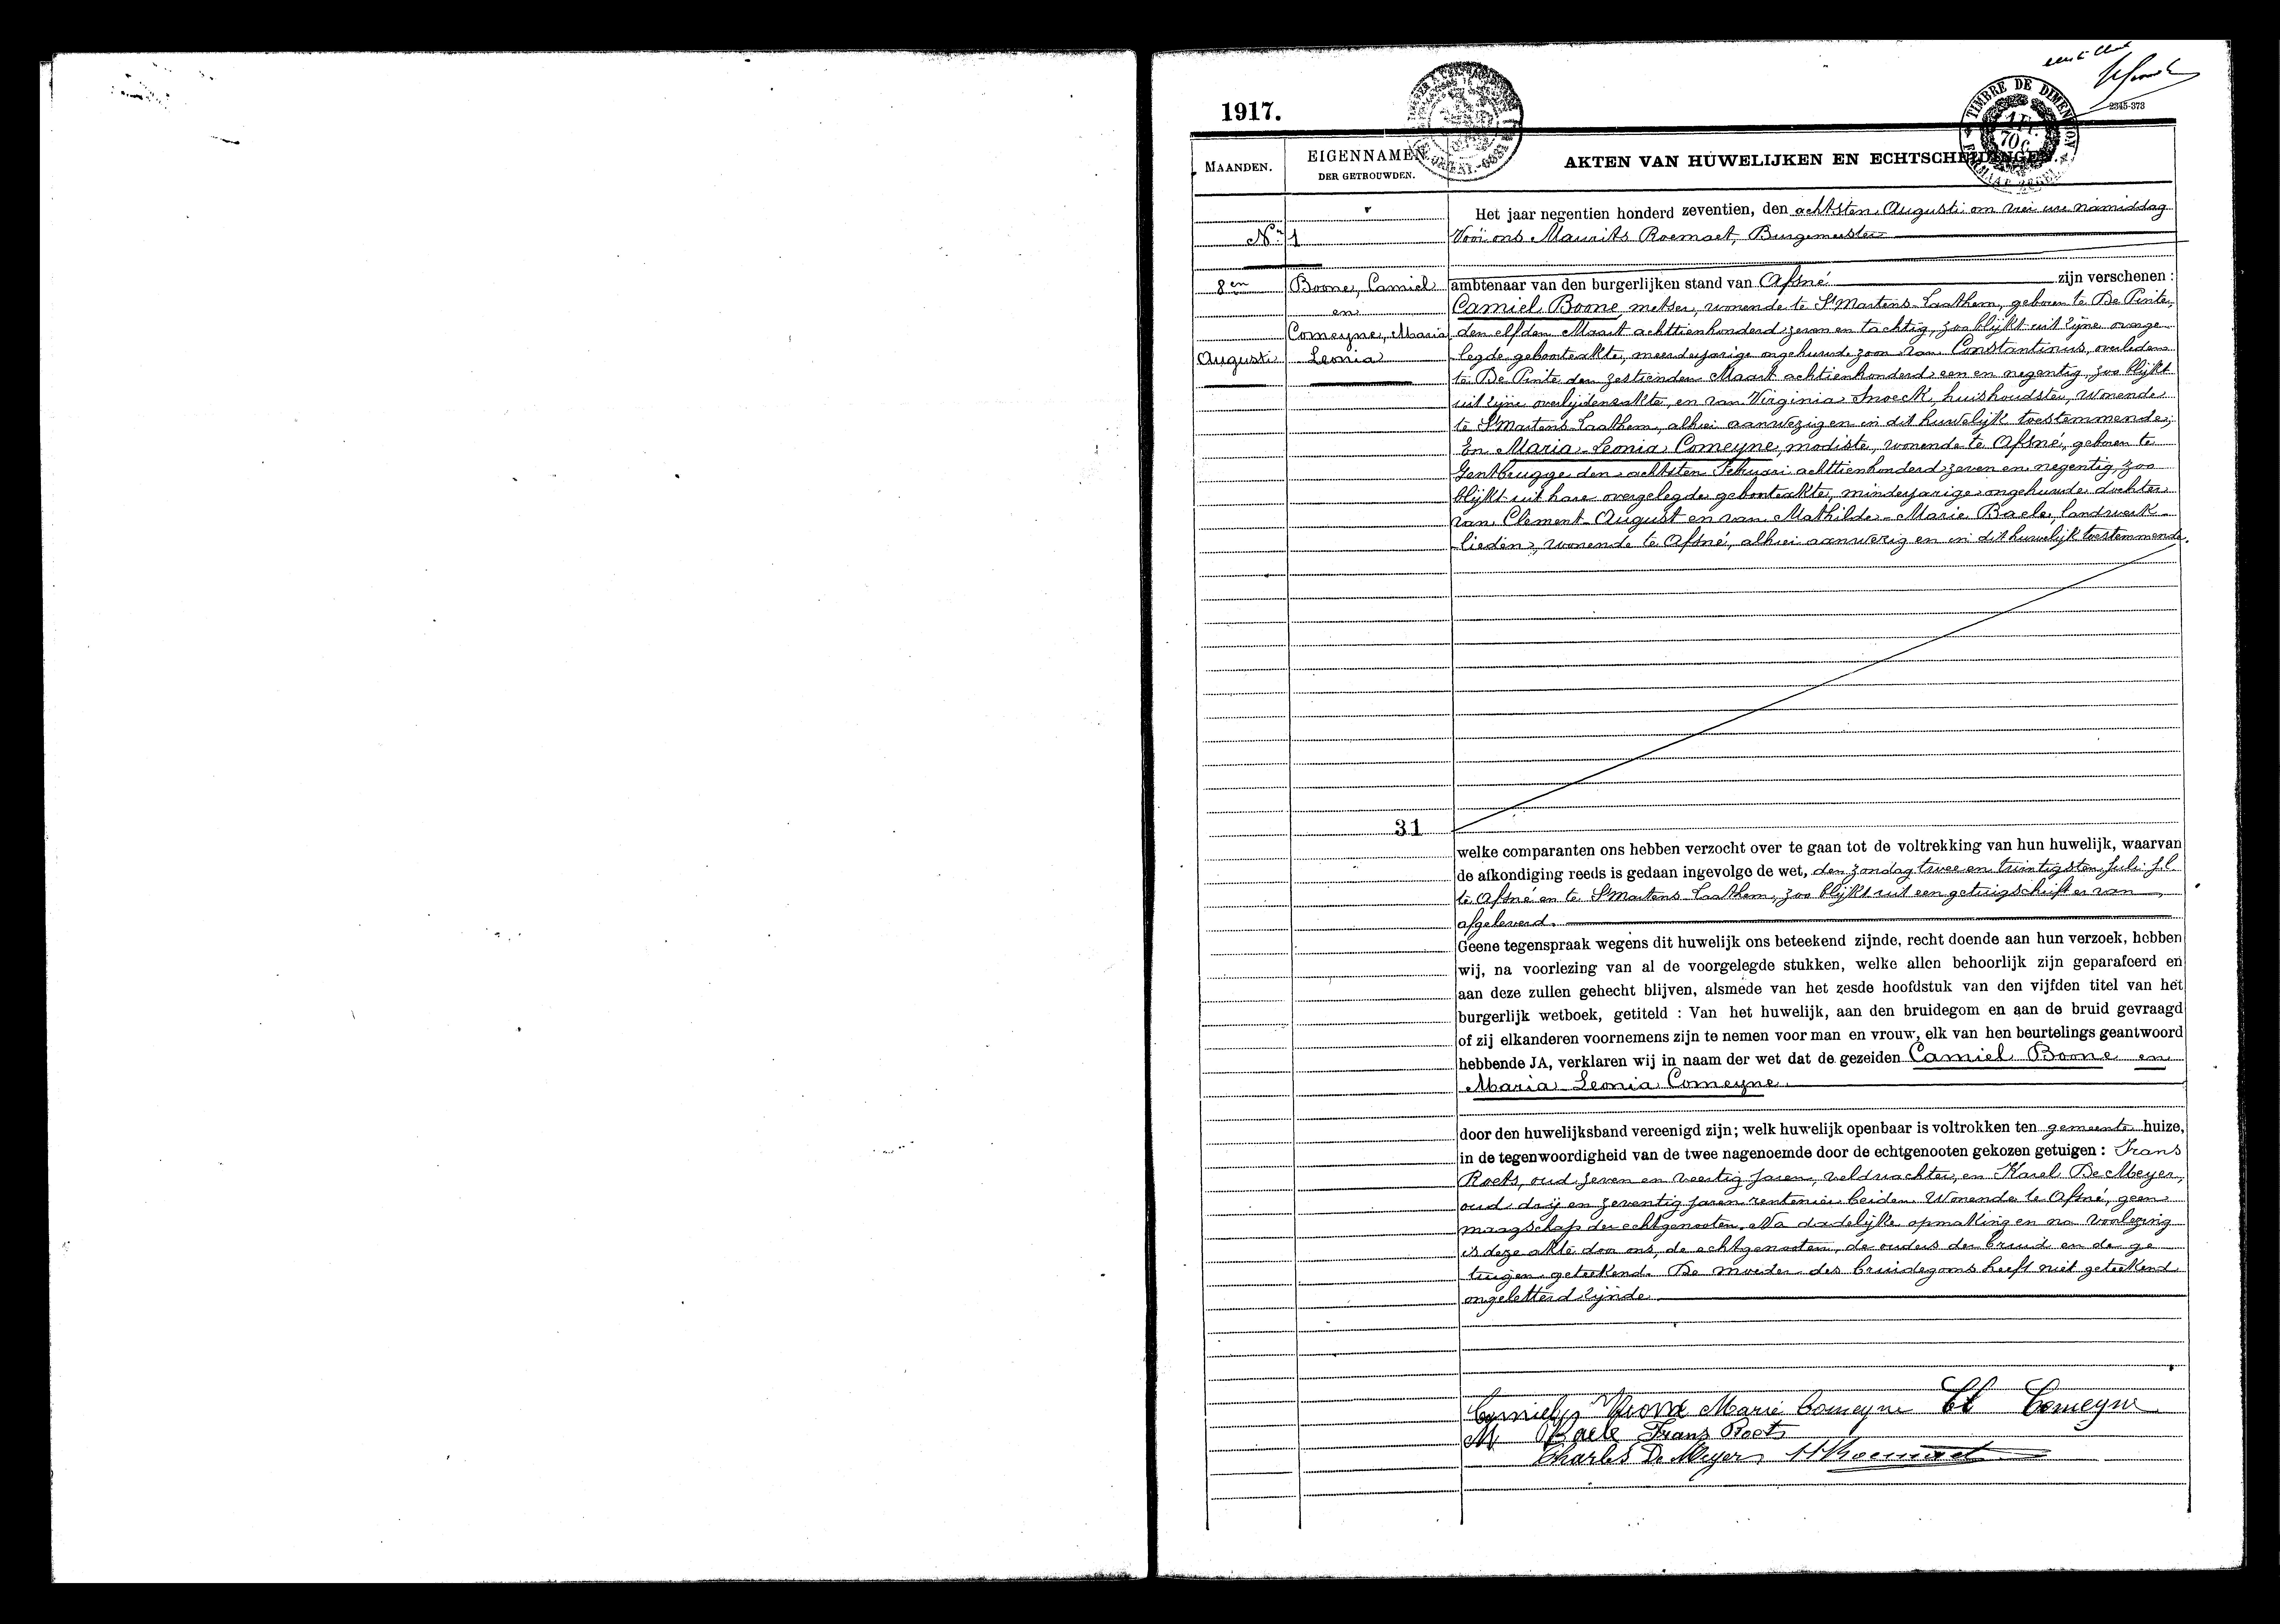 1917.
2345-373
TIMBRE DE DIMENSION
1 Fr. 70 C.
MAANDEN.
EIGENNAMEN DER GETROUWDEN.
AKTEN VAN HUWELIJKEN EN ECHTSCHEIDINGEN.
Nr 1
8en
Augusti
Boone, Camiel
en
Comeyne, Maria
Leonia
Het jaar negentien honderd zeventien, den achtsten Augusti om vier ure namiddag
Voor ons Maurits Roemaet, Burgemeester
ambtenaar van den burgerlijken stand van Afsné zijn verschenen :
Camiel Boone metser, wonende te St Martens-Laathem, geboren te De Pinte,
den elfden Maart achttienhonderd zeven en tachtig, zoo blijkt uit zijne overge-
legde geboorteakte, meerderjarige ongehuwde zoon van Constantinus, overleden
te De Pinte den zestienden Maart achtienhonderd een en negentig, zoo blijkt
uit zijne overlijdensakte, en van Virginia Snoeck, huishoudster, wonende
te St Martens-Laathem, alhier aanwezig en in dit huwelijk toestemmende;
En Maria-Leonia Comeyne, modiste, wonende te Afsné, geboren te
Gentbrugge den achtsten Februari achttienhonderd zeven en negentig, zoo
blijkt uit hare overgelegde geboorteakte, minderjarige ongehuwde dochter
van Clement-August en van Mathilde-Marie Baele, landwerk-
lieden, wonende te Afsné, alhier aanwezig en in dit huwelijk toestemmende.
31
welke comparanten ons hebben verzocht over te gaan tot de voltrekking van hun huwelijk, waarvan
de afkondiging reeds is gedaan ingevolge de wet, den zondag twee en twintigsten Juli j.l.
te Afsné en te St Martens-Laathem, zoo blijkt uit een getuigschrift er van
afgeleverd.
Geene tegenspraak wegens dit huwelijk ons beteekend zijnde, recht doende aan hun verzoek, hebben
wij, na voorlezing van al de voorgelegde stukken, welke allen behoorlijk zijn geparafeerd en
aan deze zullen gehecht blijven, alsmede van het zesde hoofdstuk van den vijfden titel van het
burgerlijk wetboek, getiteld : Van het huwelijk, aan den bruidegom en aan de bruid gevraagd
of zij elkanderen voornemens zijn te nemen voor man en vrouw, elk van hen beurtelings geantwoord
hebbende JA, verklaren wij in naam der wet dat de gezeiden Camiel Boone en
Maria Leonia Comeyne.
door den huwelijksband vereenigd zijn; welk huwelijk openbaar is voltrokken ten gemeente huize,
in de tegenwoordigheid van de twee nagenoemde door de echtgenooten gekozen getuigen : Frans
Roets, oud zeven en veertig jaren, veldwachter, en Karel De Meyer,
oud drij en zeventig jaren rentenier beiden wonende te Afsné, geen
maagschap der echtgenooten. Na dadelijke opmaking en na voorlezing
is deze akte door ons, de echtgenooten, de ouders der bruid en de ge-
tuigen geteekend. De moeder des bruidegoms heeft niet geteekend
ongeletterd zijnde.
Camiel Boone Marie Comeyne Cl Comeyne
M Baele Frans Roets
Charles De Meyer M Roemaet